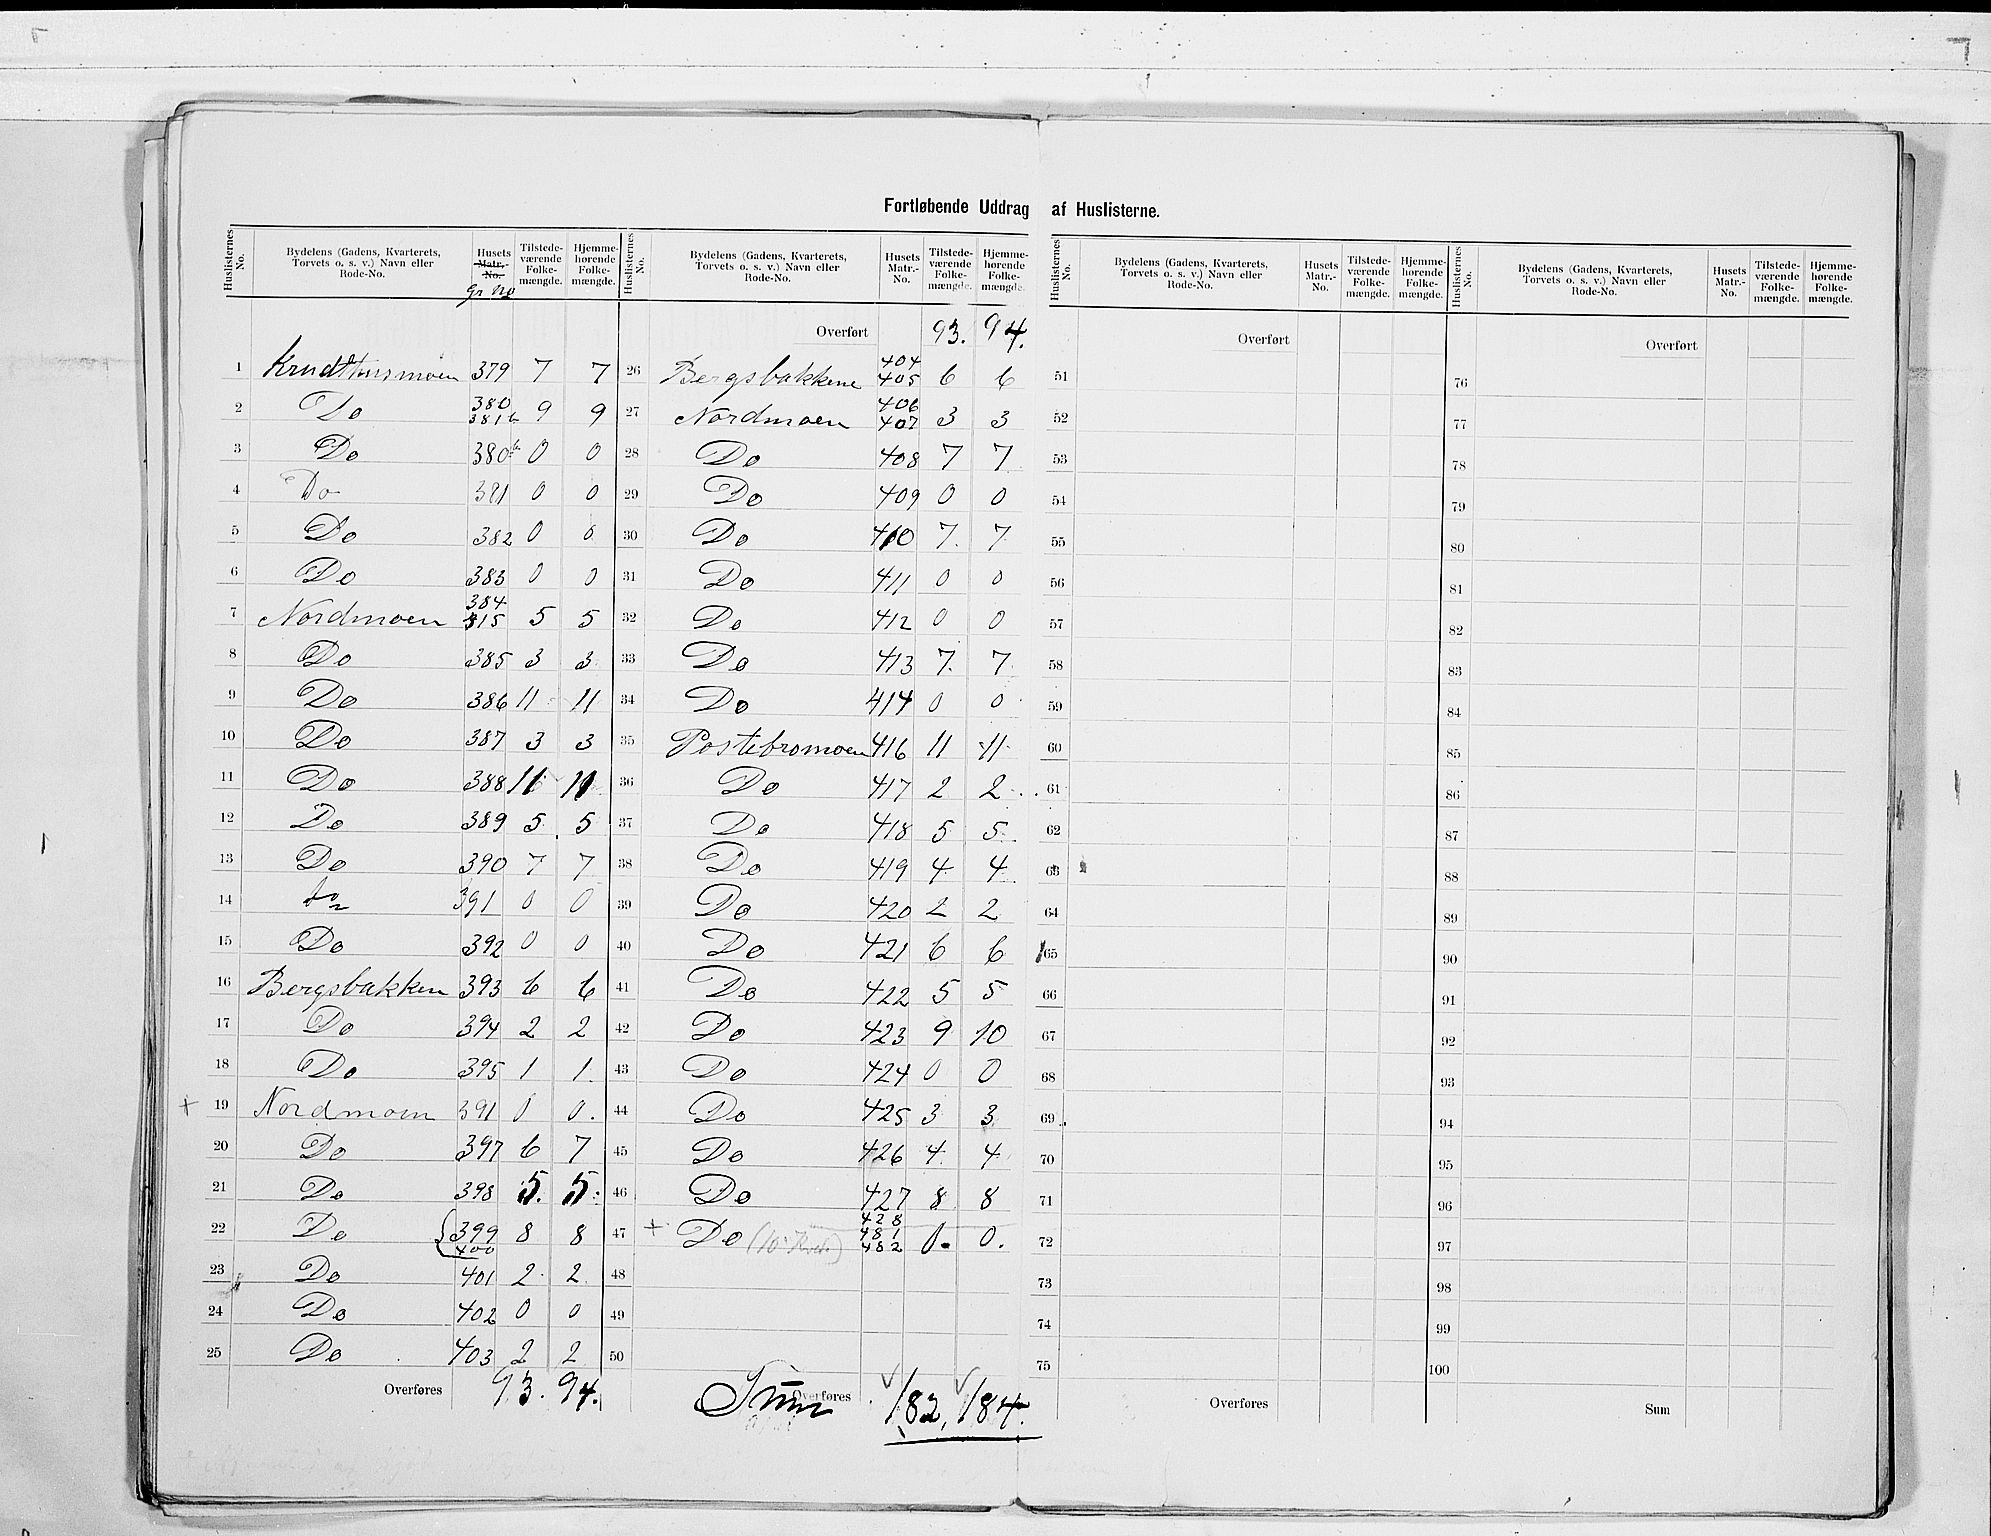 Fortløbende Uddrag af Huslisterne.
Huslisternes No. | Bydelens (Gadens, Kvarterets, Torvets o. s. v.) Navn eller Rode-No. | Husets Matr.-No. Gr No | Tilstedeværende Folkemængde. | Hjemmehørende Folkemængde.
1 Krudthusmoen 379 7 7
2 Do 380 381b 9 9
3 Do 380b 0 0
4 Do 381 0 0
5 Do 382 0 0
6 Do 383 0 0
7 Nordmoen 384 415 5 5
8 Do 385 3 3
9 Do 386 11 11
10 Do 387 3 3
11 Do 388 11 11
12 Do 389 5 5
13 Do 390 7 7
14 Do 391 0 0
15 Do 392 0 0
16 Bergsbakken 393 6 6
17 Do 394 2 2
18 Do 395 1 1
+ 19 Nordmoen 391 0 0.
20 Do 397 6 7
21 Do 398 5. 5.
22 Do { 399 400 8 8
23 Do 401 2 2
24 Do 402 0 0
25 Do 403 2 2
Overføres 93. 94.
Huslisternes No. | Bydelens (Gadens, Kvarterets, Torvets o. s. v.) Navn eller Rode-No. | Husets Matr.-No. | Tilstedeværende Folkemængde. | Hjemmehørende Folkemængde.
Overført 93. 94.
26 Bergsbakkene 404 405 6 6
27 Nordmoen 406 407 3 3
28 Do 408 7 7
29 Do 409 0 0
30 Do 410 7. 7
31 Do 411 0 0
32 Do 412 0 0
33 Do 413 7. 7
34 Do 414 0 0
35 Postebromoen 416 11 11
36 Do 417 2 2
37 Do 418 5 5
38 Do 419 4 4
39 Do 420 2 2
40 Do 421 6 6
41 Do 422 5 5
42 Do 423 9 10
43 Do 424 0 0
44 Do 425 3 3
45 Do 426 4 4
46 Do 427 8 8
47 + Do 428 481 482 0. 0.
48
49
50
Overføres Sum 182, 184.
Huslisternes No. | Bydelens (Gadens, Kvarterets, Torvets o. s. v.) Navn eller Rode-No. | Husets Matr.-No. | Tilstedeværende Folkemængde. | Hjemmehørende Folkemængde.
Overført
51
52
53
54
55
56
57
58
59
60
61
62
63
64
65
66
67
68
69
70
71
72
73
74
75
Overføres
Huslisternes No. | Bydelens (Gadens, Kvarterets, Torvets o. s. v.) Navn eller Rode-No. | Husets Matr.-No. | Tilstedeværende Folkemængde. | Hjemmehørende Folkemængde.
Overført
76
77
78
79
80
81
82
83
84
85
86
87
88
89
90
91
92
93
94
95
96
97
98
99
100
Sum